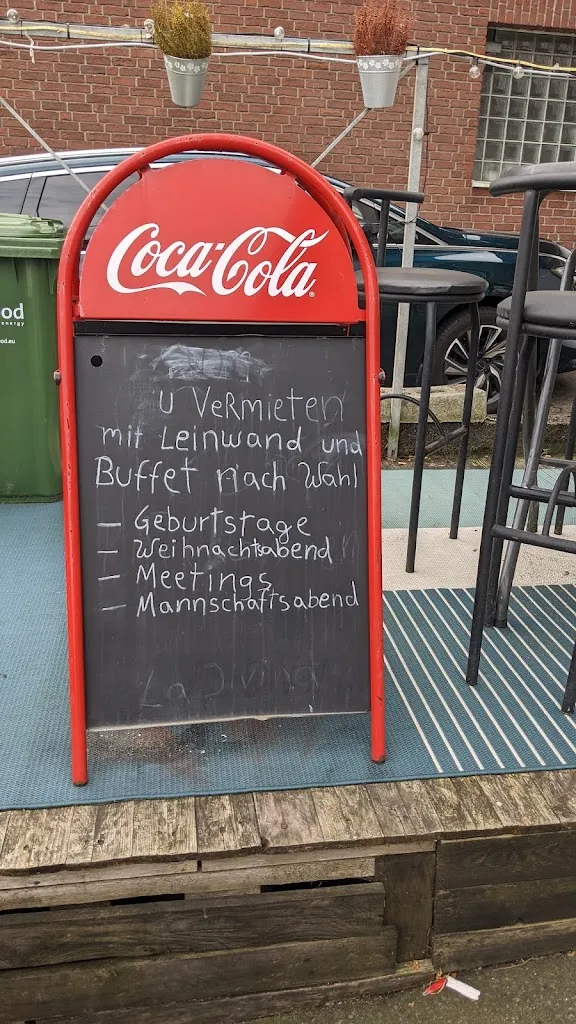 Coca-Cola
ood
energy
od.eu
u Vermieten
mit Leinwand und
Buffet nach Wahl
– Geburtstage
– Weihnachtsabend
– Meetings
– Mannschaftsabend
La Divina